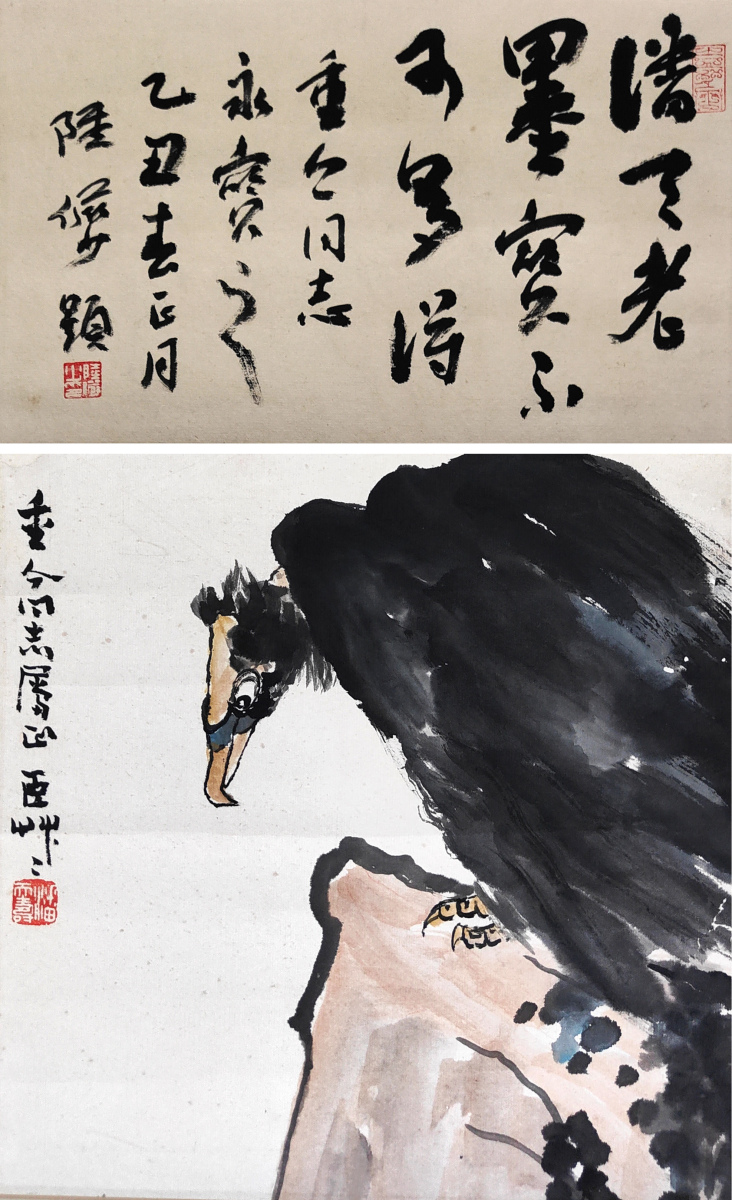 潘天老
墨寶不
可多得
重今同志
永寶之
乙丑春正月
陸儼少題
重今同志屬正 艸〻
潘天壽